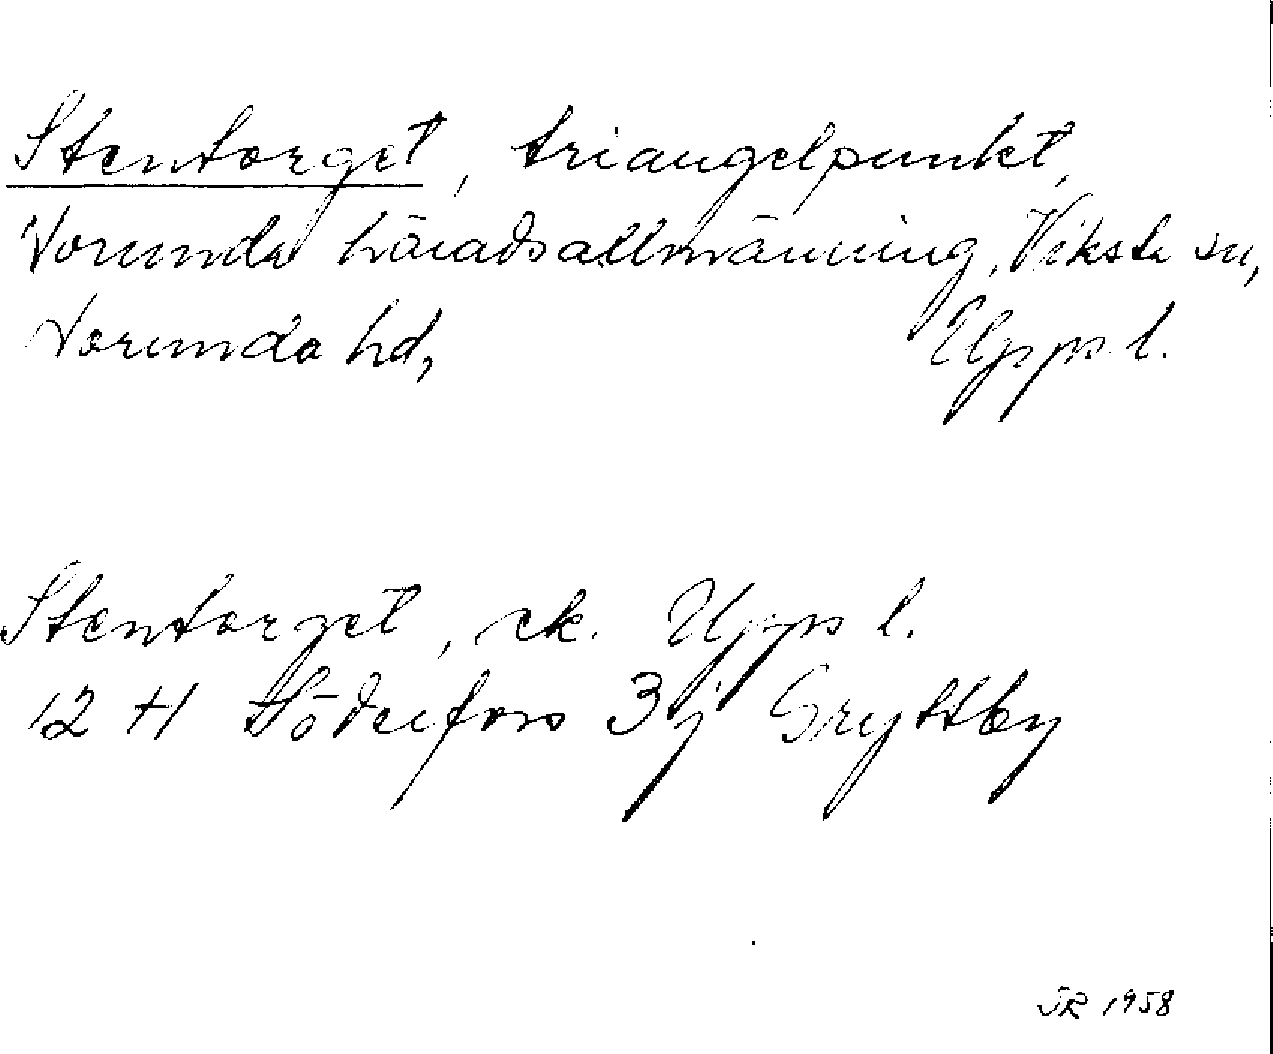 Stentorget, triangelpunkt,
Norunda häradsallmänning, Viksta sn,
Norunda hd, Uppl.
Stentorget, ek. Uppl.
12 H Söderfors 3j Gryttby
SR 1958